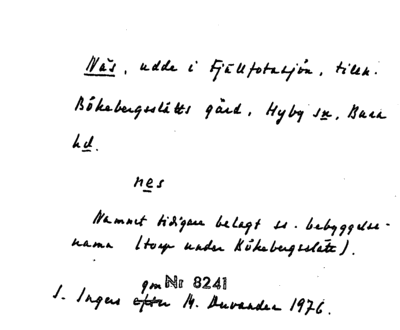 Näs, udde i Fjällfotasjön, tillh.
Bökebergsslätts gård, Hyby sn, Bara
hd.
nes
Namnet tidigare belagt ss. bebyggelse-
namn (torp under Bökebergsslätt).
gm Nr 8241
I. Ingers efter M. Duvander 1976.